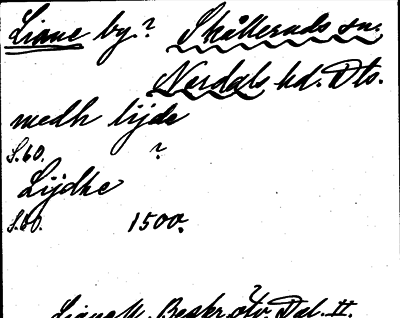 Liane by? Skålleruds sn.
Nordals hd. Dls.
medh lijde
S. 60. ?
Lijdhe
S. 60. 1500.
Beskr. Dal. II.